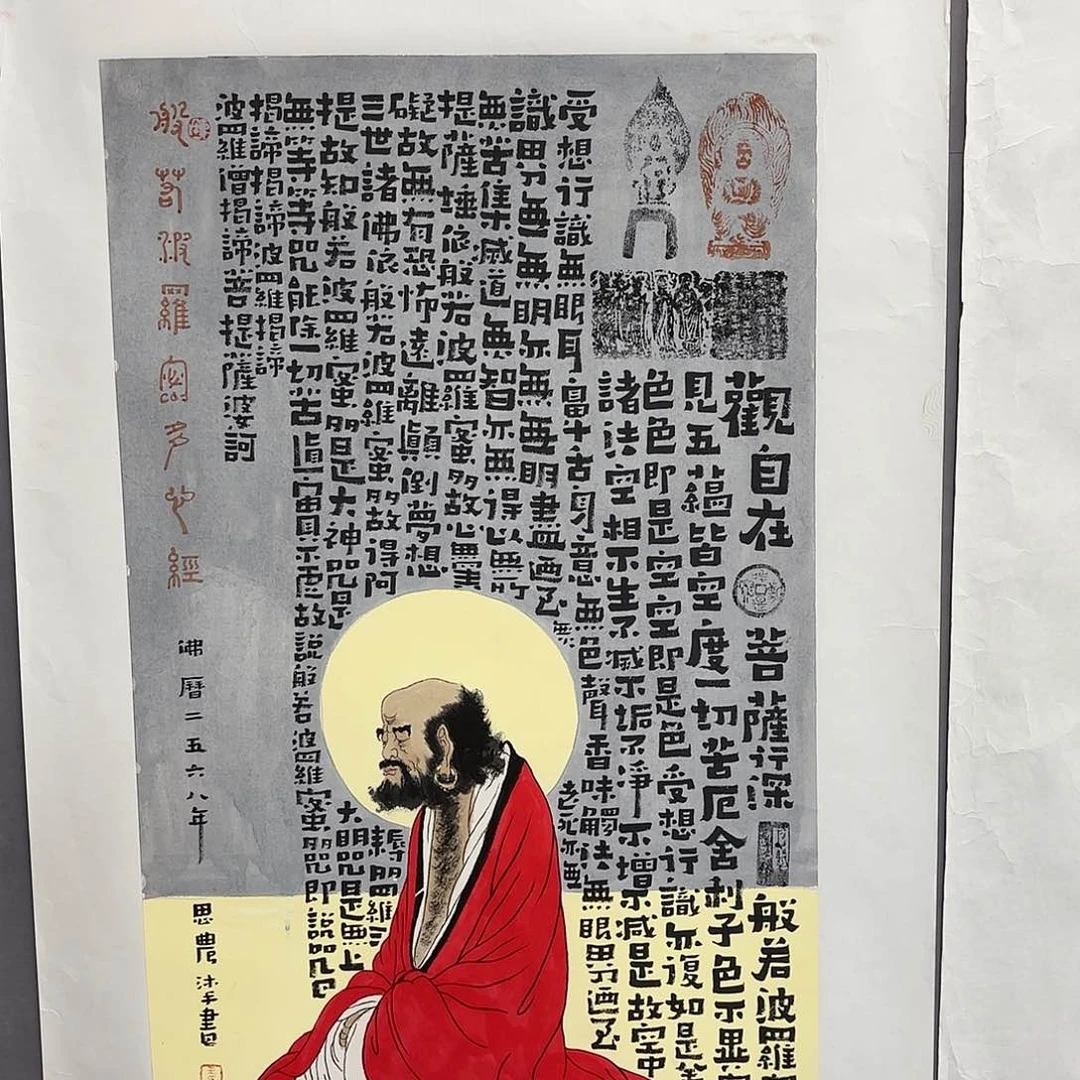 觀自在菩薩行深般若波羅
見五蘊皆空度一切苦厄舍利子色不異空
色色即是空空即是色受想行識亦復如是
諸法空相不生不滅不垢不淨不增不減是故空中
受想行識無眼耳鼻舌身意無色聲香味觸法無眼界迺至
識界無無明亦無無明盡迺至無老死亦無
無苦集滅道無智亦無得以無所
提薩埵依般若波羅蜜多故心無罣
礙故無有恐怖遠離顛倒夢想
三世諸佛依般若波羅蜜多故得阿耨多羅三
提故知般若波羅蜜多是大神咒是大明咒是無上
無等等咒能除一切苦真實不虛故說般若波羅蜜多咒即說咒曰
揭諦揭諦波羅揭諦
波羅僧揭諦菩提薩婆訶
般若波羅密多心經
佛曆二五六八年
思農沐手書